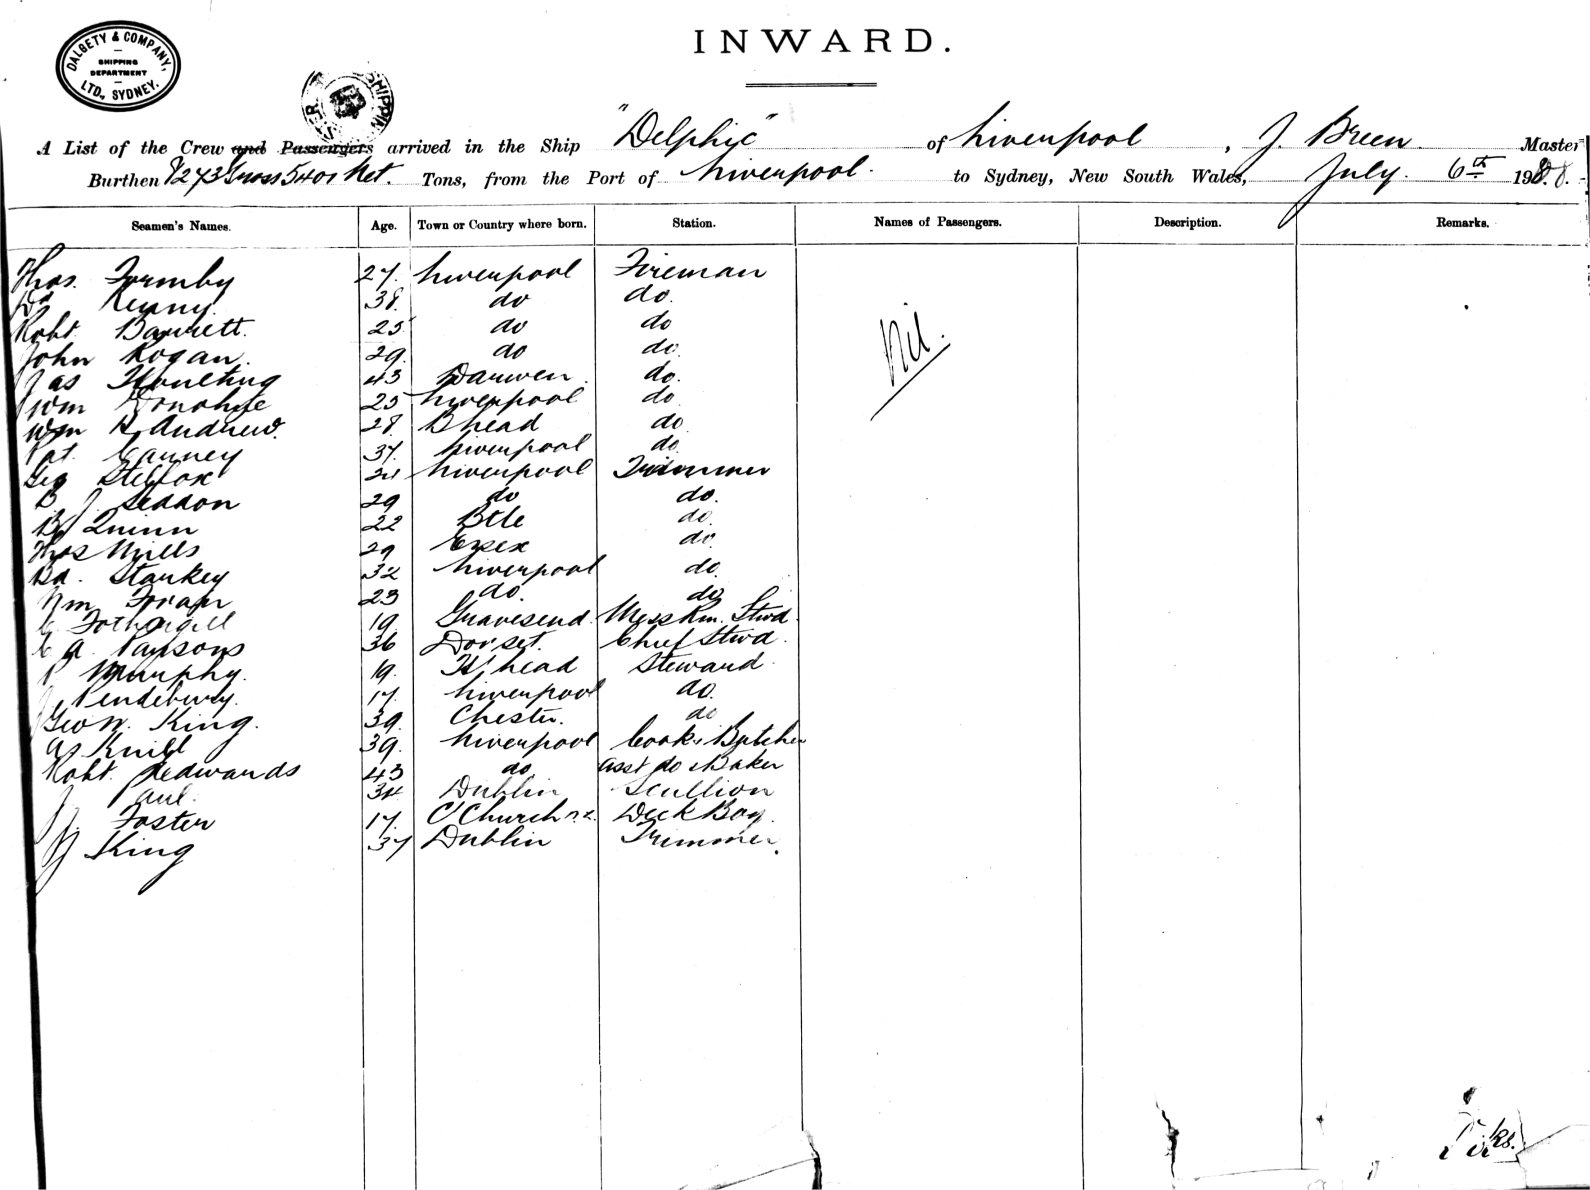 DALGETY & COMPANY, LTD., SYDNEY.
SHIPPING DEPARTMENT
INWARD.
A List of the Crew and Passengers arrived in the Ship "Delphic" of Liverpool, J. Breen Master
Burthen 8273 Gross 5401 Net. Tons, from the Port of Liverpool. to Sydney, New South Wales, July. 6th 1908.
Seamen's Names. Age. Town or Country where born. Station. Names of Passengers. Description. Remarks.
Thos. Formby 27. Liverpool Fireman
Kenny. 38. do do.
Robt. Barrett. 25 do do
John Hogan. 29. do do.
Jas Houlting 43 Darwen. do.
Wm Donohue 25 Liverpool do
Wm H. Andrew. 28 B'head do
Pat. Carney 37. Liverpool do
Geo Stelfox 21 Liverpool Trimmer
B J. Seddon 29 do do.
B. Quinn 22 Btle do.
Thos Mills 29 Essex do.
Ed. Starkey 32 Liverpool do.
Wm Foran 23 do. do
C Fothergill 19 Gravesend Mess Rm. Stwd.
C A. Parsons 36 Dorset. Chief Stwd.
P Murphy. 19. H'head Steward.
J Pendlebury. 17. Liverpool do.
Geo W. King. 39. Chester. do
Knill 39. Liverpool Cook & Butcher
Robt. Edwards 43 do Asst do & Baker
J 34 Dublin Scullion
J Foster 17. C/Church N.Z. Deck Boy.
J King 37 Dublin Trimmer.
Nil.